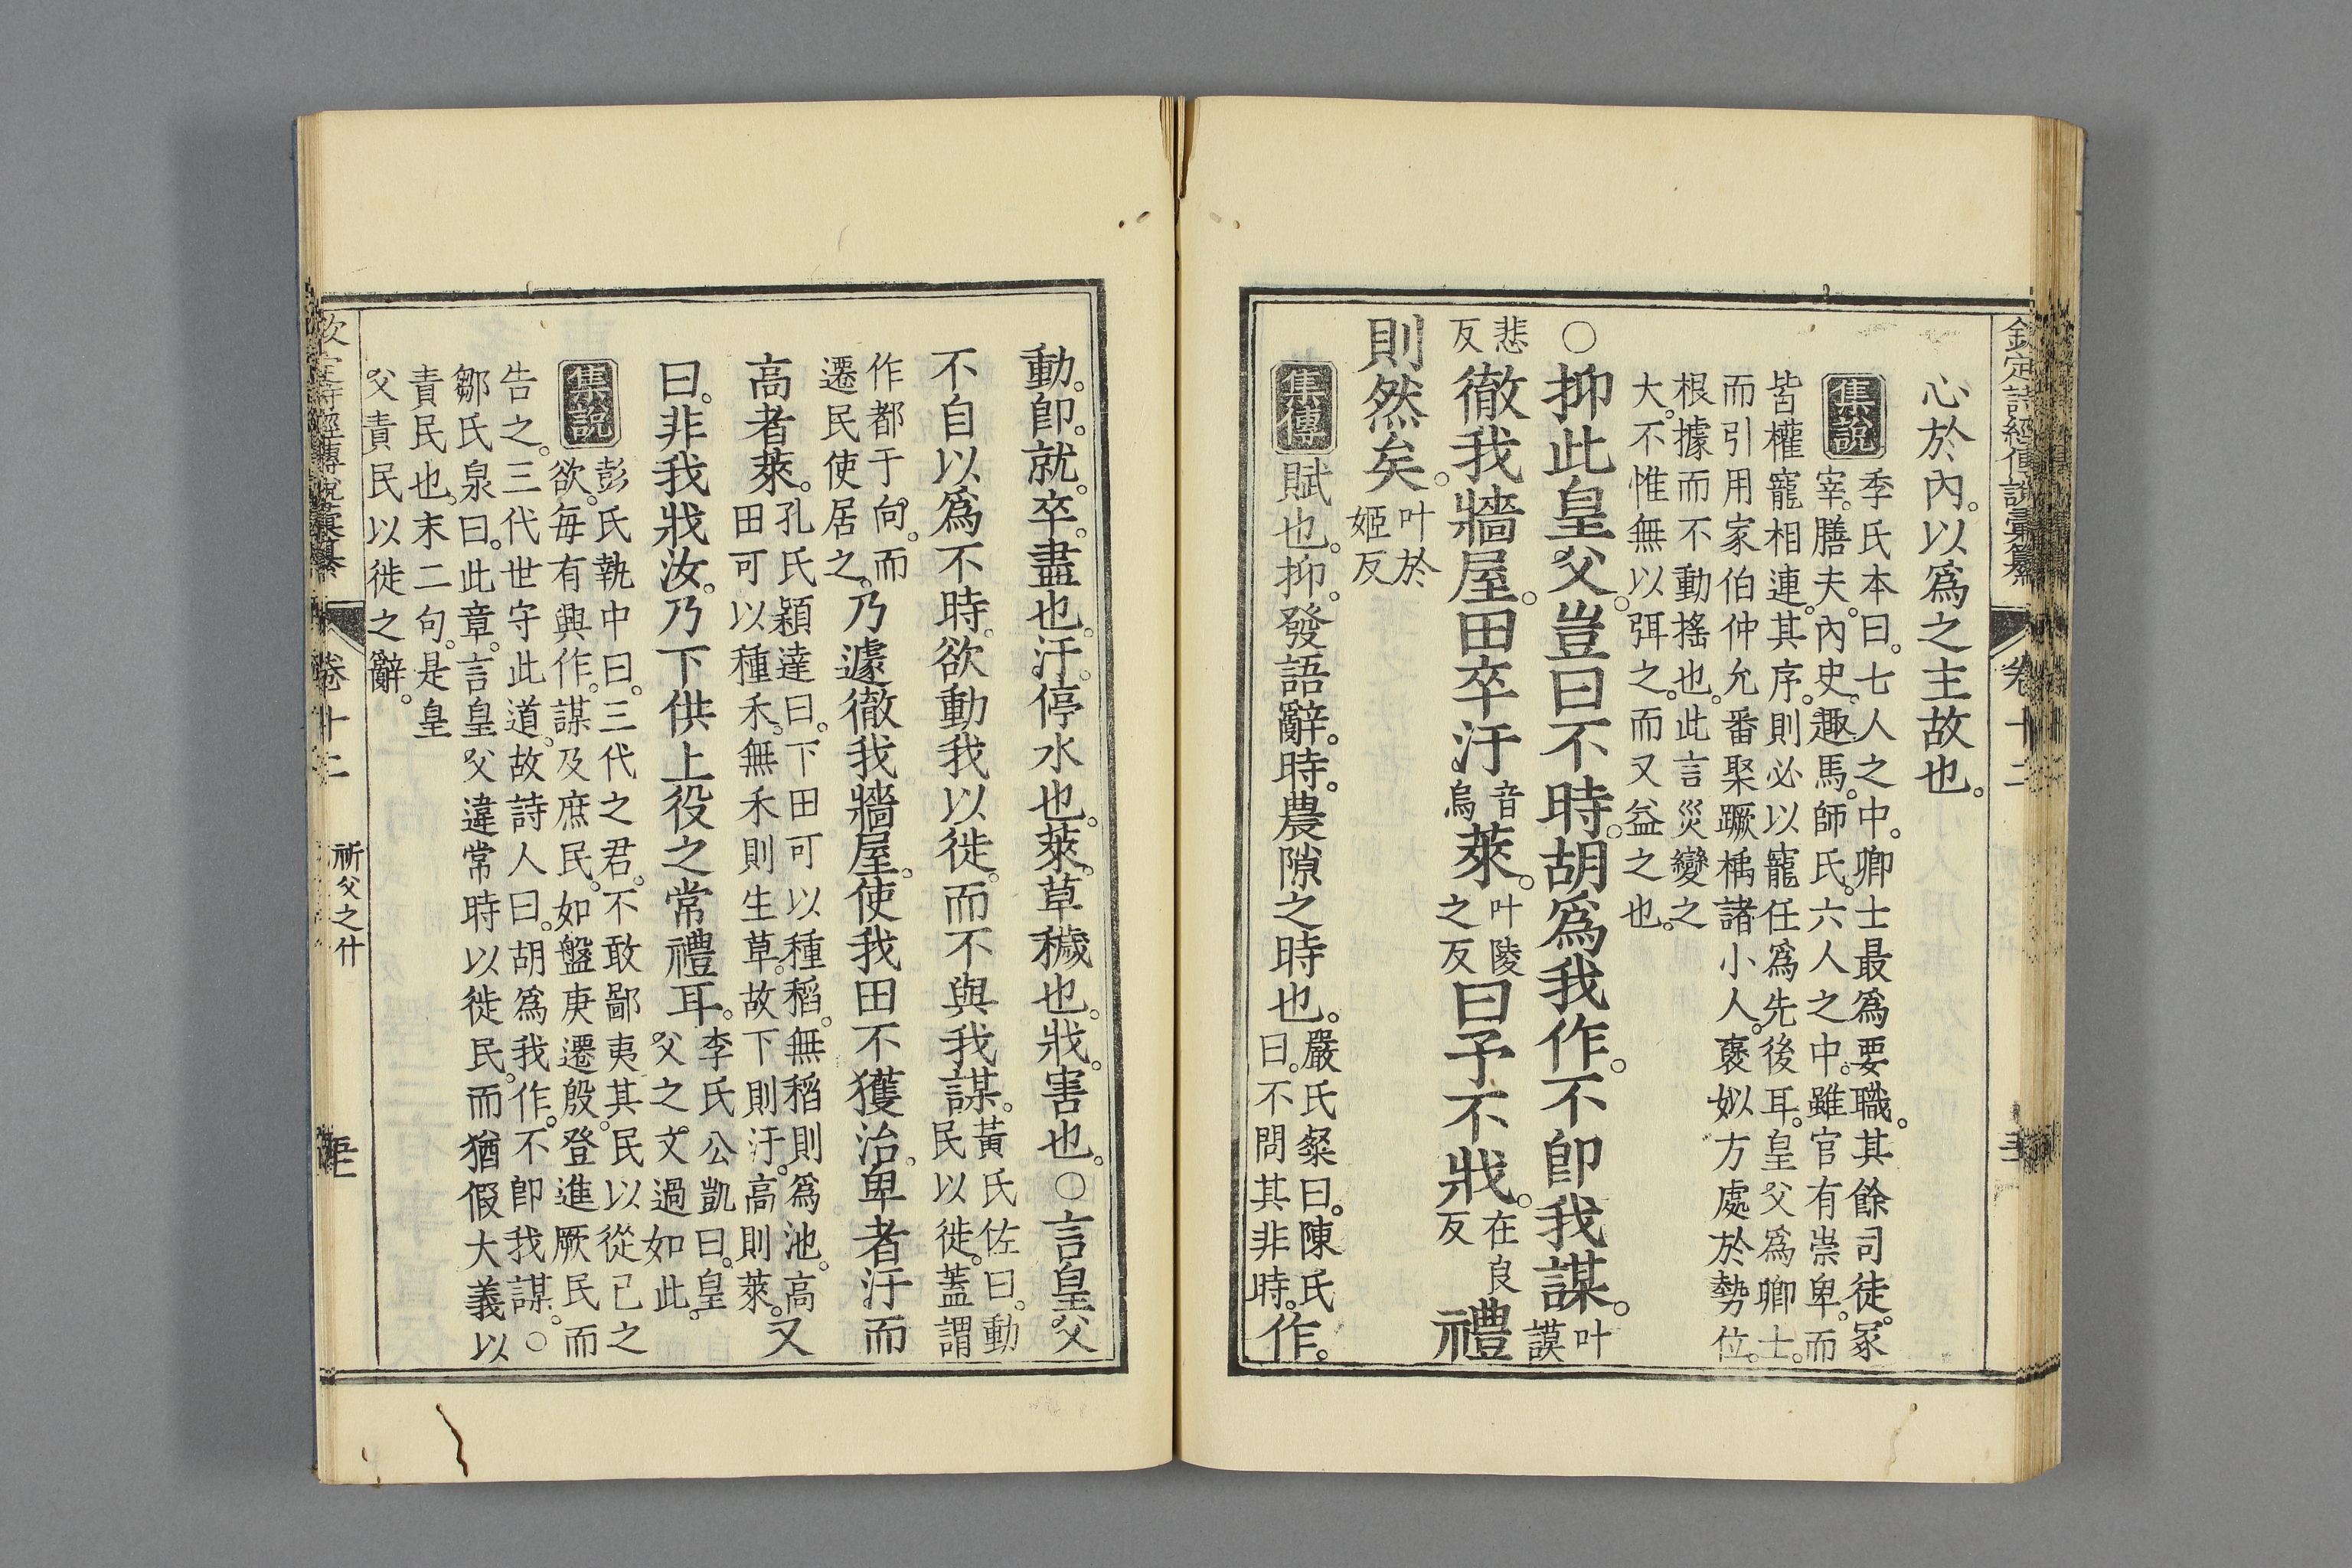 欽定詩經傳說彙纂 卷十二
心於內。以爲之主故也。
集說
季氏本曰。七人之中。卿士最爲要職。其餘司徒。冢
宰。膳夫。內史。趣馬。師氏。六人之中。雖官有崇卑。而
皆權寵相連。其序。則必以寵任爲先後耳。皇父爲卿士。
而引用家伯仲允番聚蹶楀諸小人。褒姒方處於勢位。
根據而不動搖也。此言災變之
大。不惟無以弭之。而又益之也。
○抑此皇父。豈曰不時。胡爲我作。不卽我謀。叶謨
悲反徹我牆屋。田卒汙音烏萊。叶陵之反曰予不戕。在良反禮
則然矣。叶於姬反
集傳
賦也。抑。發語辭。時。農隙之時也。嚴氏粲曰。陳氏
曰。不問其非時。作。
動。卽。就。卒。盡也。汙。停水也。萊。草穢也。戕。害也。○言皇父
不自以爲不時。欲動我以徙。而不與我謀。黃氏佐曰。動
民以徙。蓋謂
作都于向。而
遷民使居之。乃遽徹我牆屋。使我田不獲治。卑者汙而
高者萊。孔氏穎達曰。下田可以種稻。無稻則爲池。高
田可以種禾。無禾則生草。故下則汙。高則萊。又
曰。非我戕汝。乃下供上役之常禮耳。李氏公凱曰。皇
父之文過如此。
集說
彭氏執中曰。三代之君。不敢鄙夷其民以從己之
欲。每有興作。謀及庶民。如盤庚遷殷。登進厥民而
告之。三代世守此道。故詩人曰。胡爲我作。不卽我謀。○
鄒氏泉曰。此章。言皇父違常時以徙民。而猶假大義以
責民也。末二句。是皇
父責民以徙之辭。
欽定詩經傳說彙纂 卷十二 祈父之什